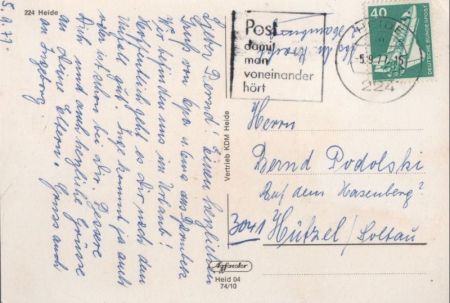 224 Heide
5.9.77.
Lieber Bernd! Einen herzlichen
Gruß von Opa u. Oma aus Dambek.
Wir befinden uns im Urlaub!
Hoffentlich geht es dir nach dem
Unfall gut. Inge kommt ja auch
schon bei dir. Bessere
Dich und auch herzliche Grüsse
an deine Eltern. Gruss auch
an Ingeborg.
Vertrieb KDM Heide
Post
damit
man
voneinander
hört
5.9.77-15
224
40
DEUTSCHE BUNDESPOST
Herrn
Bernd Podolski
Auf dem Hasenberg 2
3041 Hützel/Soltau
Heid 04
74/10